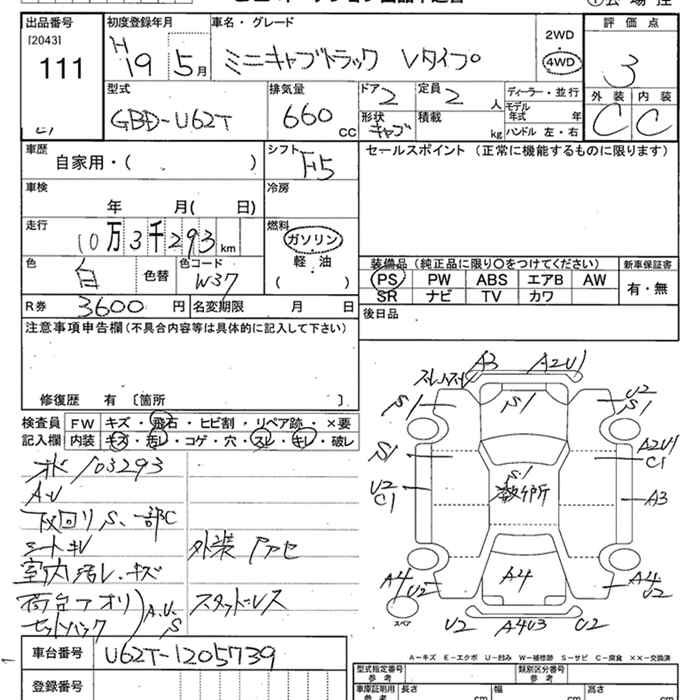 出品番号 初度登録年月 車名・グレード 2WD 評価点
[2043] H
111 19 5月 ミニキャブトラック Vタイプ 4WD 3
型式 排気量 ドア 定員 ディーラー・並行 外装 内装
GBD-U62T 660 CC 2 2 人 モデル年式 年 C C
形状 キャブ 積載 kg ハンドル 左・右
車歴 シフト セールスポイント (正常に機能するものに限ります)
自家用・( ) F5
車検 冷房
年 月( 日)
走行 燃料
10万3千293km ガソリン
色 色コード 軽油
白 色替 W37 ( )
装備品 (純正品に限り〇をつけてください) 新車保証書
PS PW ABS エアB AW 有・無
SR ナビ TV カワ
R券 3600円 名変期限 月 日
後日品
注意事項申告欄 (不具合内容等は具体的に記入して下さい)
修復歴 有 〔箇所 〕
検査員 FW キズ・飛石・ヒビ割・リペア跡・×要
記入欄 内装 キズ・汚レ・コゲ・穴・スレ・キレ・破レ
オド103293
A.U
下回リ S、一部C
シートキレ 外装 アクセ
室内汚レ、キズ
荷台アオリ A.U.S スタッドレス
セットバック
A3 A2U1
S1 S1 U2 S1
S1 A2U1 C1
U2 C1 S1 数ヶ所 A3
A4 U2 A4 A4 U2
スペア U2 A4U3 U2
A-キズ E-エクボ U-凹み W-補修跡 S-サビ C-腐食 XX-交換済
車台番号 U62T-1205739
型式指定番号 参考 類別区分番号 参考
登録番号 車庫証明用 参考 長さ cm 幅 cm 高さ cm